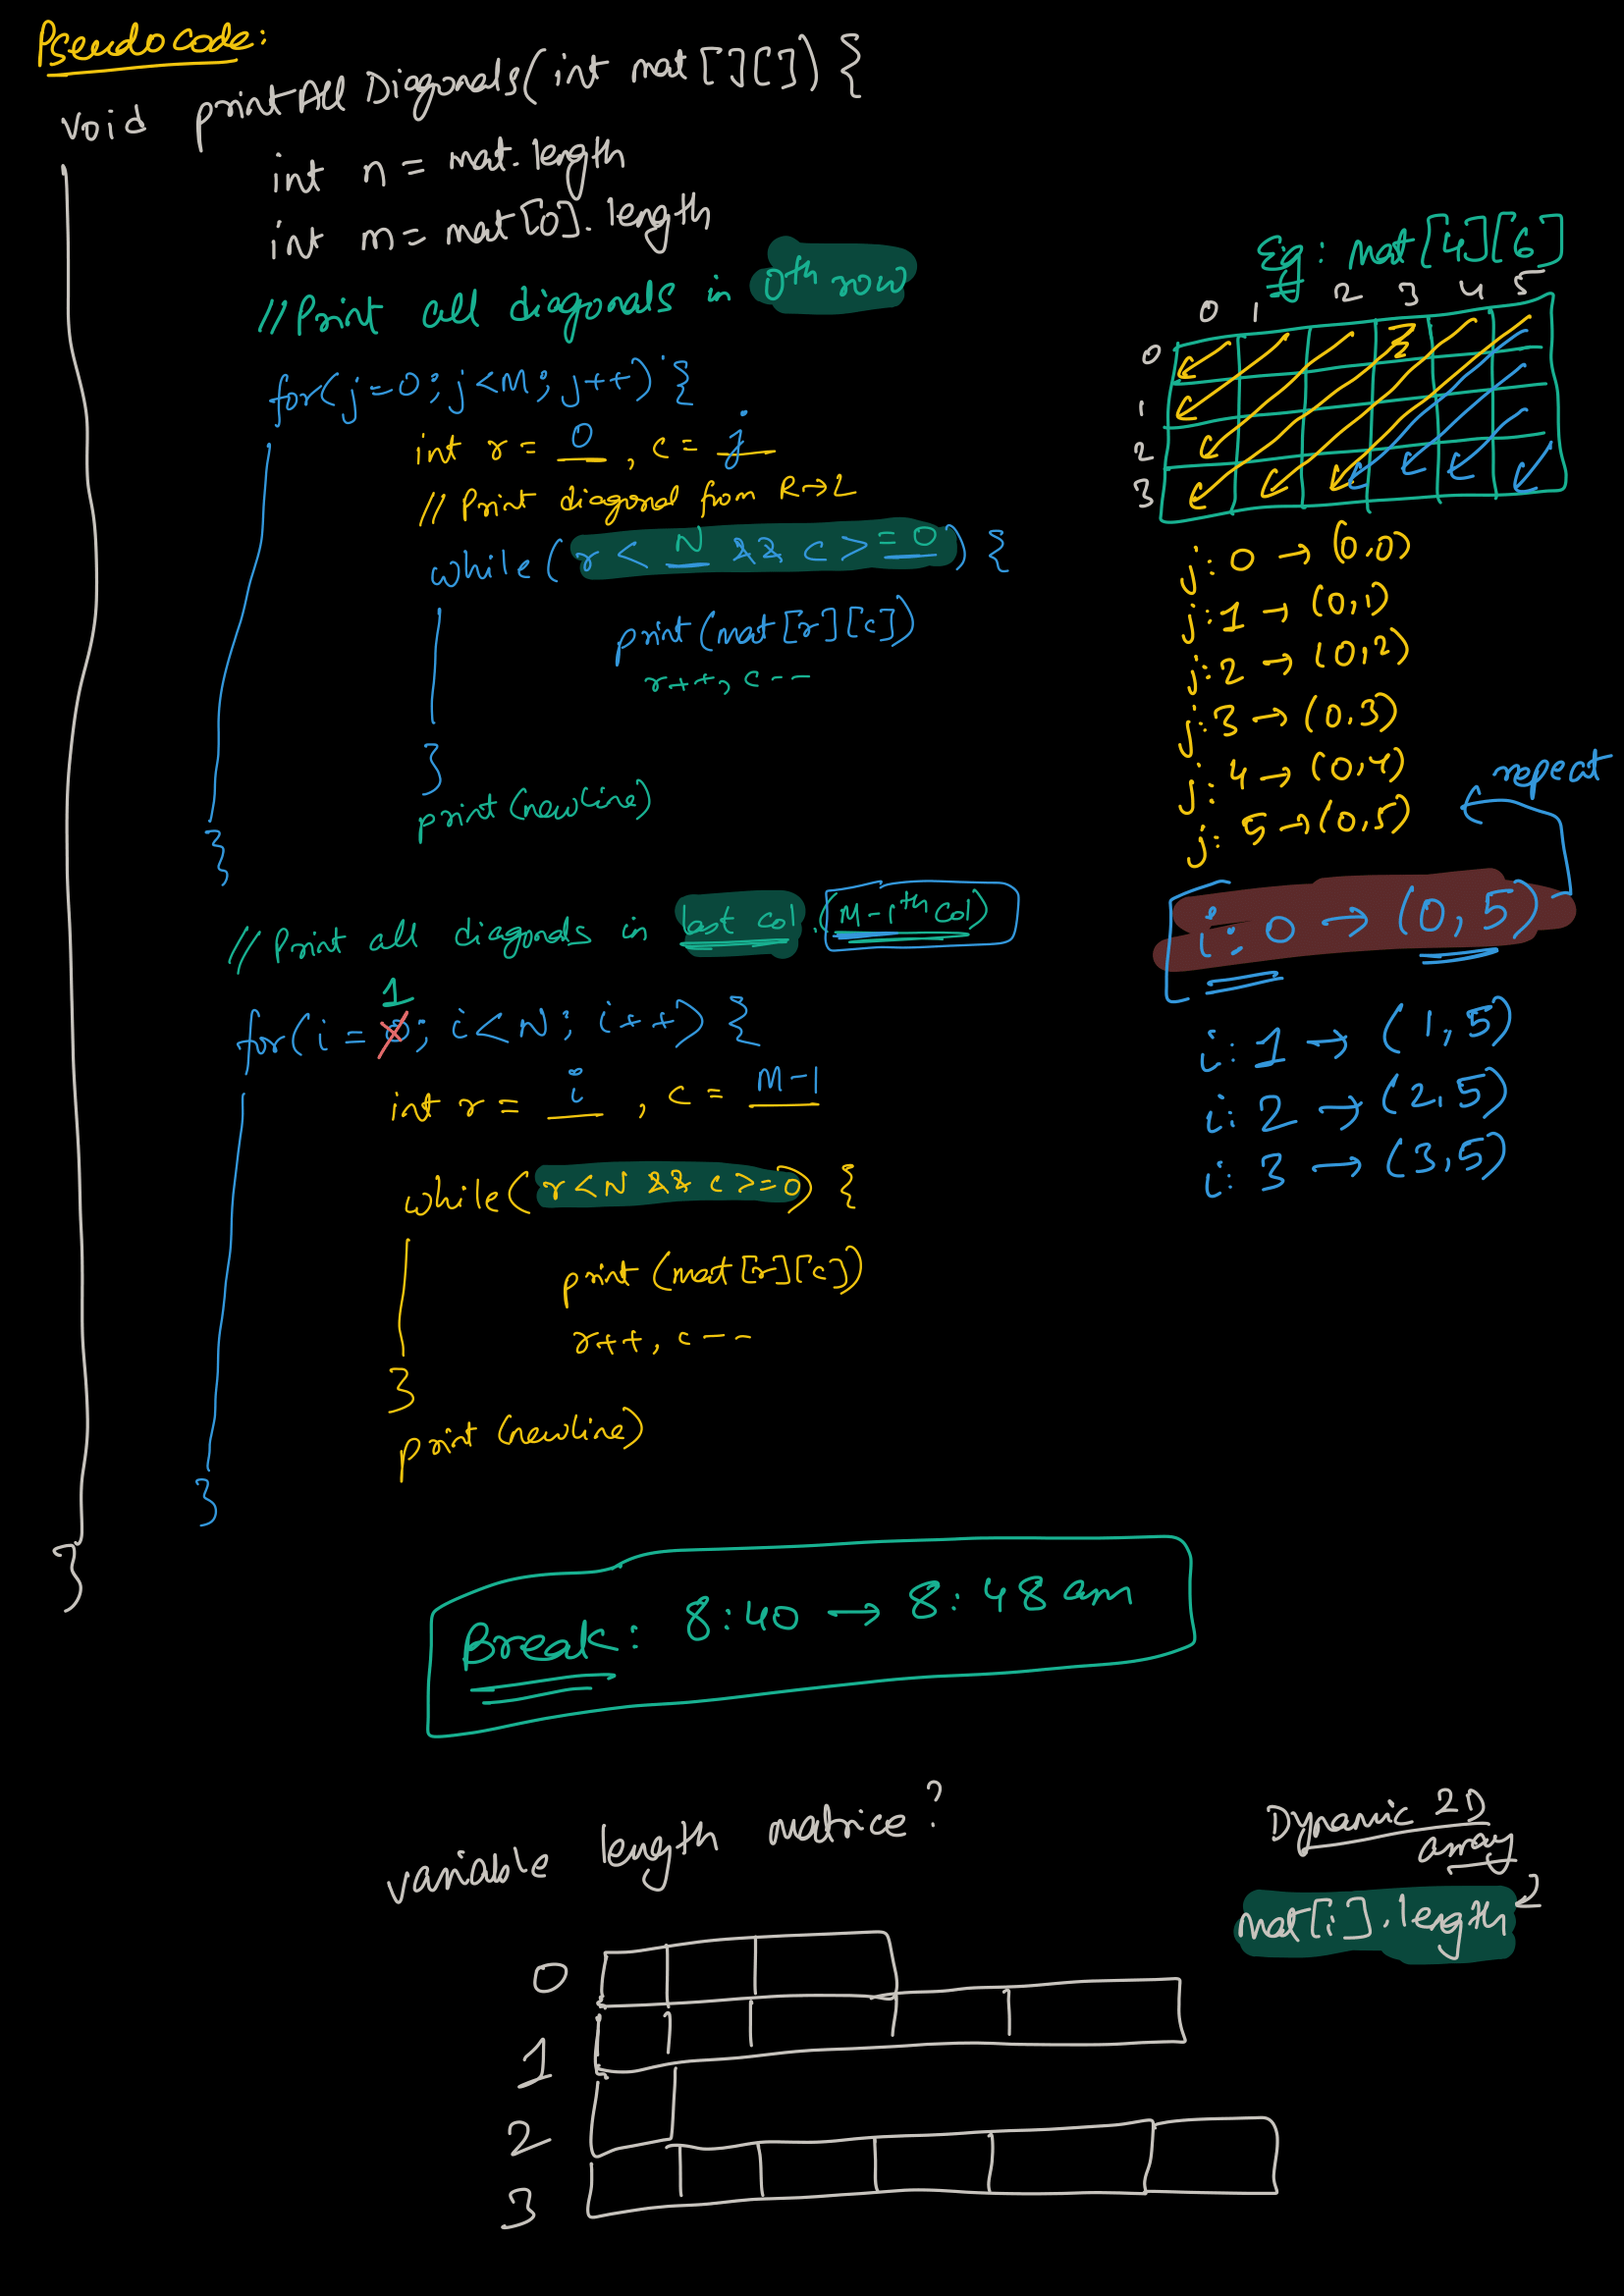 Pseudo code:
void printAll Diagonals(int mat[][]) {
int n = mat.length
int m = mat[0].length
//Print all diagonals in 0th row
for(j=0; j<M; j++) {
int r = 0, c = j
// Print diagonal from R→L
while (r < N && c >= 0) {
print(mat[r][c])
r++, c--
}
print(newline)
}
// Print all diagonals in last col. (M-1th Col)
for(i = 0; i<N; i++) {
1
int r = i, c = M-1
while (r<N && c >=0) {
print (mat[r][c])
r++, c--
}
print (newline)
}
}
Eg: mat[4][6]
0 1 2 3 4 5
0
1
2
3
j: 0 → (0,0)
j: 1 → (0,1)
j: 2 → (0,2)
j: 3 → (0,3)
j: 4 → (0,4)
j: 5 → (0,5)
repeat
i: 0 → (0, 5)
i: 1 → (1, 5)
i: 2 → (2, 5)
i: 3 → (3,5)
Break: 8:40 → 8:48 am
variable length matrice?
Dynamic 2D
array
mat[i].length
0
1
2
3